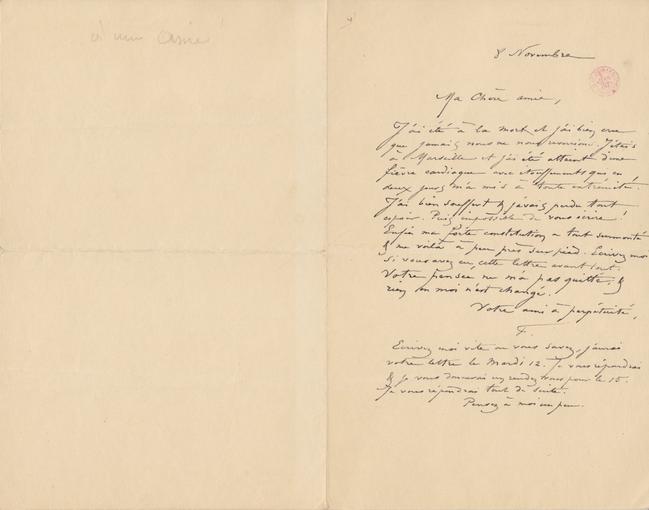 à une amie
8 Novembre
Ma Chère amie,
J'ai été à la mort et j'ai bien cru
que jamais nous ne nous reverrions. J'étais
à Marseille et j'ai été atteint d'une
fièvre cardiaque avec étouffements qui en
deux jours m'a mis à toute extrémité.
J'ai bien souffert & j'avais perdu tout
espoir. Puis impossible de vous écrire !
Enfin ma forte constitution a tout surmonté
& me voilà à peu près sur pied. Ecrivez moi
si vous avez eu cette lettre avant tout.
Votre pensée ne m'a pas quitté, &
rien en moi n'est changé.
Votre ami à perpétuité,
F.
Ecrivez moi vite où vous savez, j'aurai
votre lettre le Mardi 12. Je vous répondrai
& je vous donnerai un rendez vous pour le 15.
Je vous répondrai tout de suite.
Pensez à moi un peu.